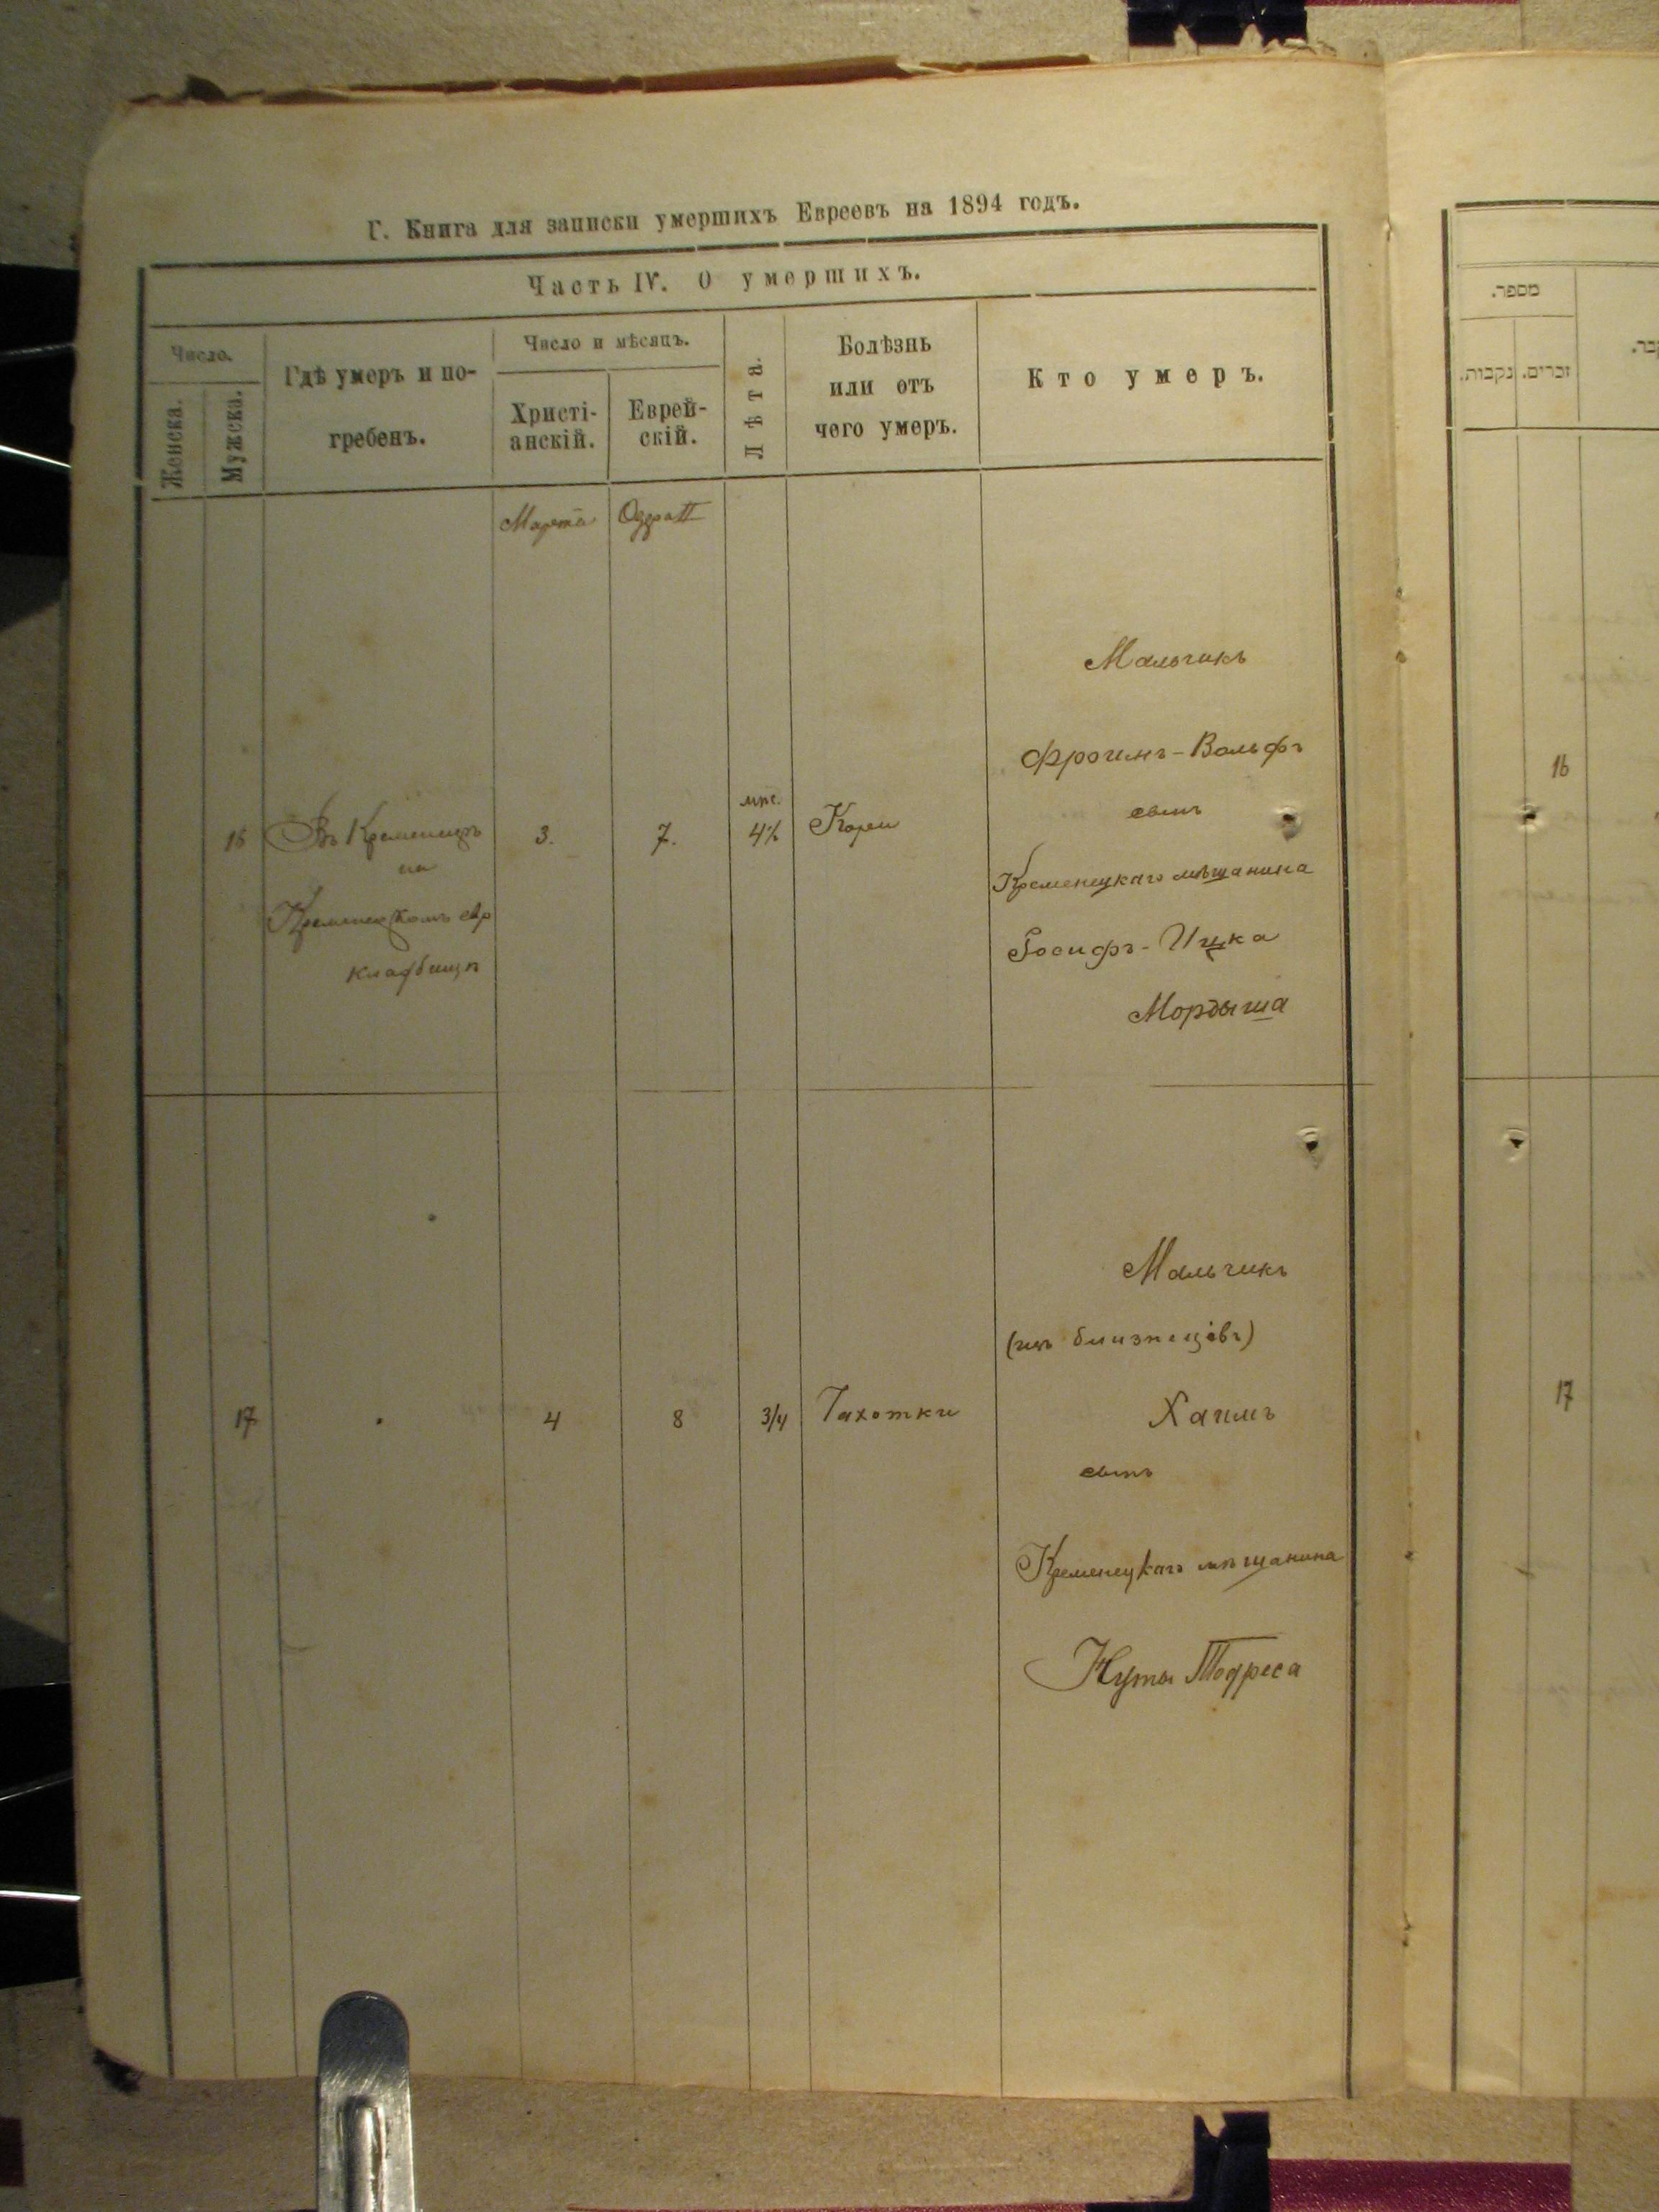 Г. Книга для записки умершихъ Евреевъ на 1894 годъ.
Часть IV. О умершихъ.
Число.
Женска.
Мужска.
Гдѣ умеръ и по-
гребенъ.
Число и мѣсяцъ.
Христі-
анскій.
Еврей-
скій.
Лѣта.
Болѣзнь
или отъ
чего умеръ.
Кто умеръ.
Марта
Мальчикъ
Фроимъ-Вольфъ
сынъ
Кременецкаго мѣщанина
Іосифъ-Ицка
Мордыша
16
Въ Кременцѣ
на
Кременецкомъ евр
кладбищѣ
3.
7.
мѣс.
4½
Кори
Мальчикъ
(изъ близнецовъ)
Хаимъ
сынъ
Кременецкаго мѣщанина
Нуты Тодреса
17
4
8
3/4
Чахотки
מספר.
זכרים.
נקבות.
16
17